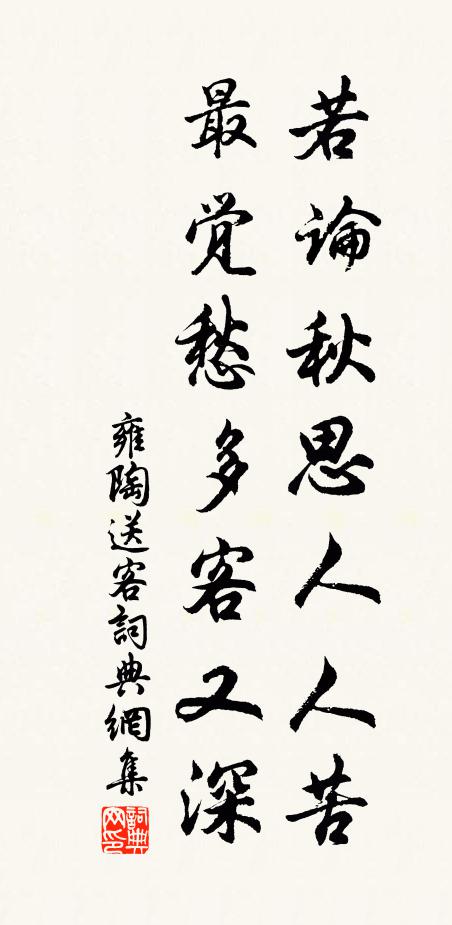 若論秋思人人苦
最觉愁多客又深
雍陶送客詞典網集
詞典网印